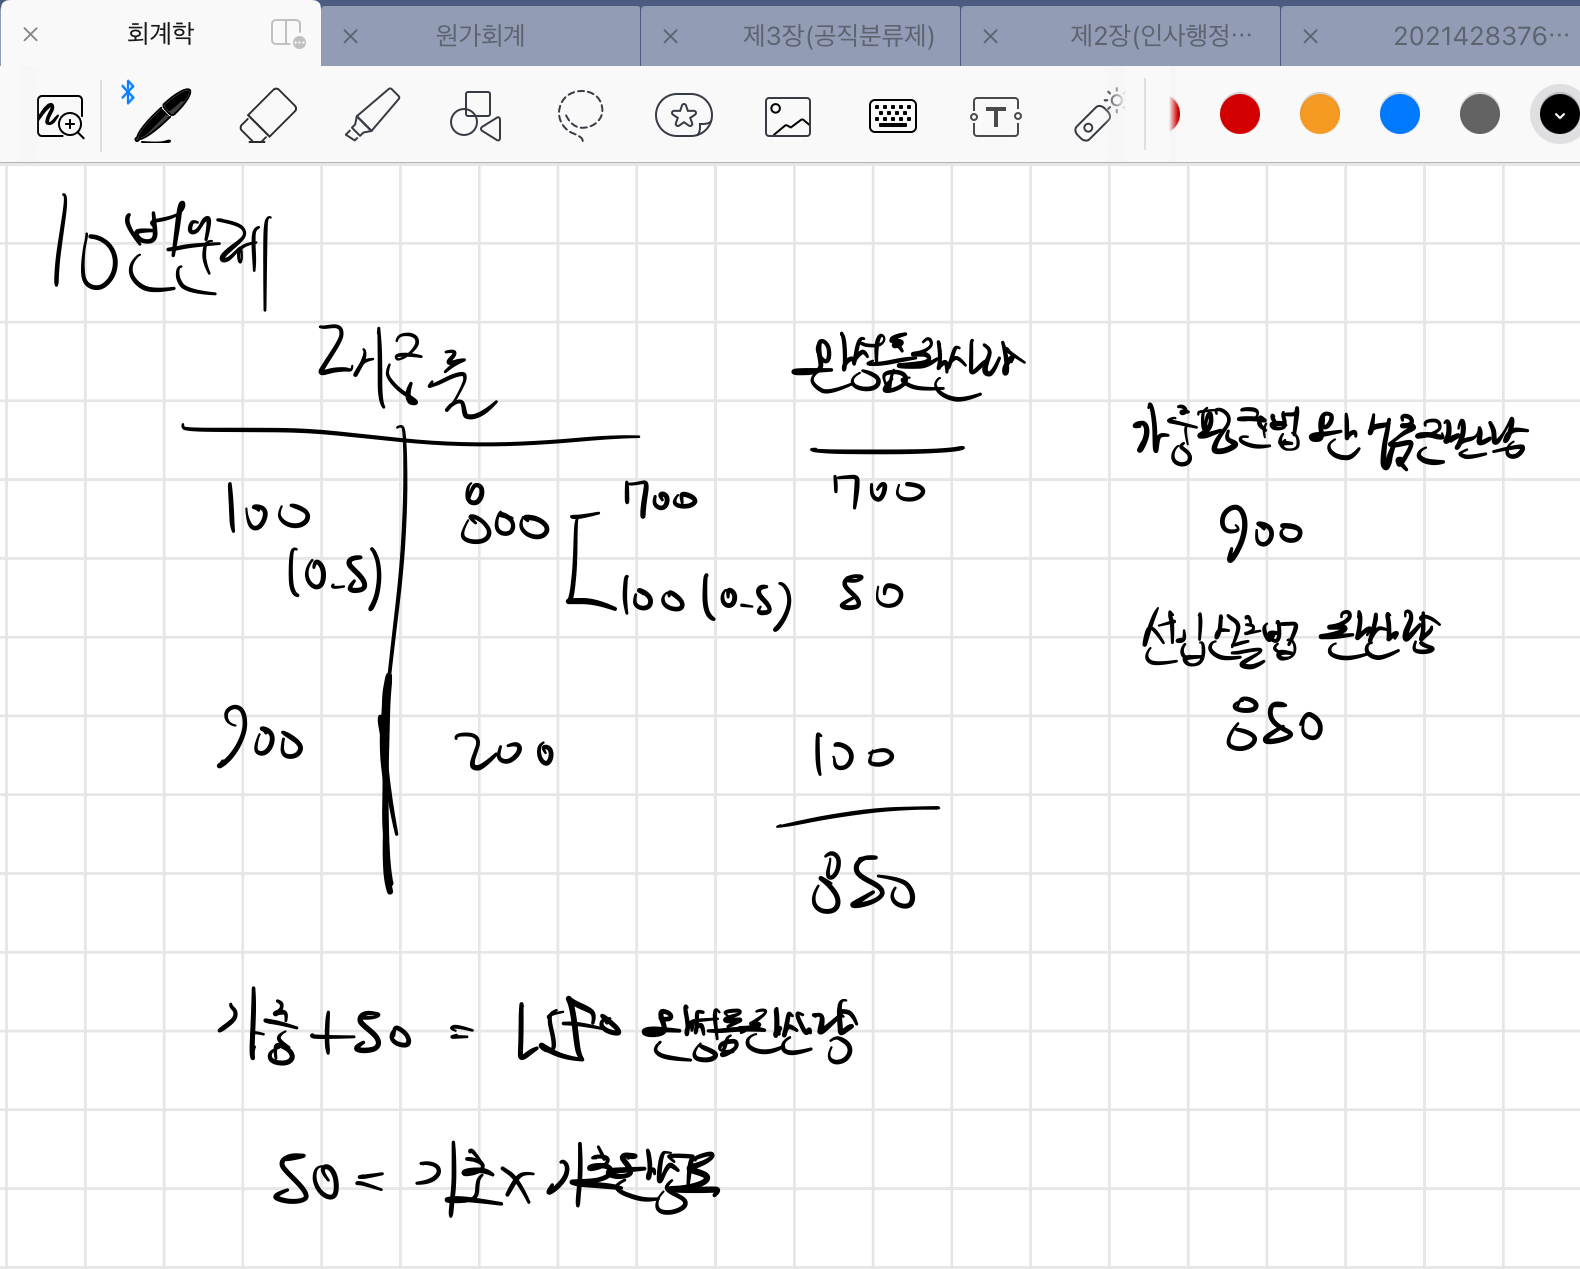 회계학
원가회계
제3장(공직분류제)
제2장(인사행정…
2021428376…
10번문제
재공품
완성품환산량
100
(0.5)
800
700
100 (0.5)
700
50
900
200
100
850
가중평균법 완성품환산량
900
선입선출법 환산량
850
+50 =
완성품환산량
50 = 기초 x 기초완성도